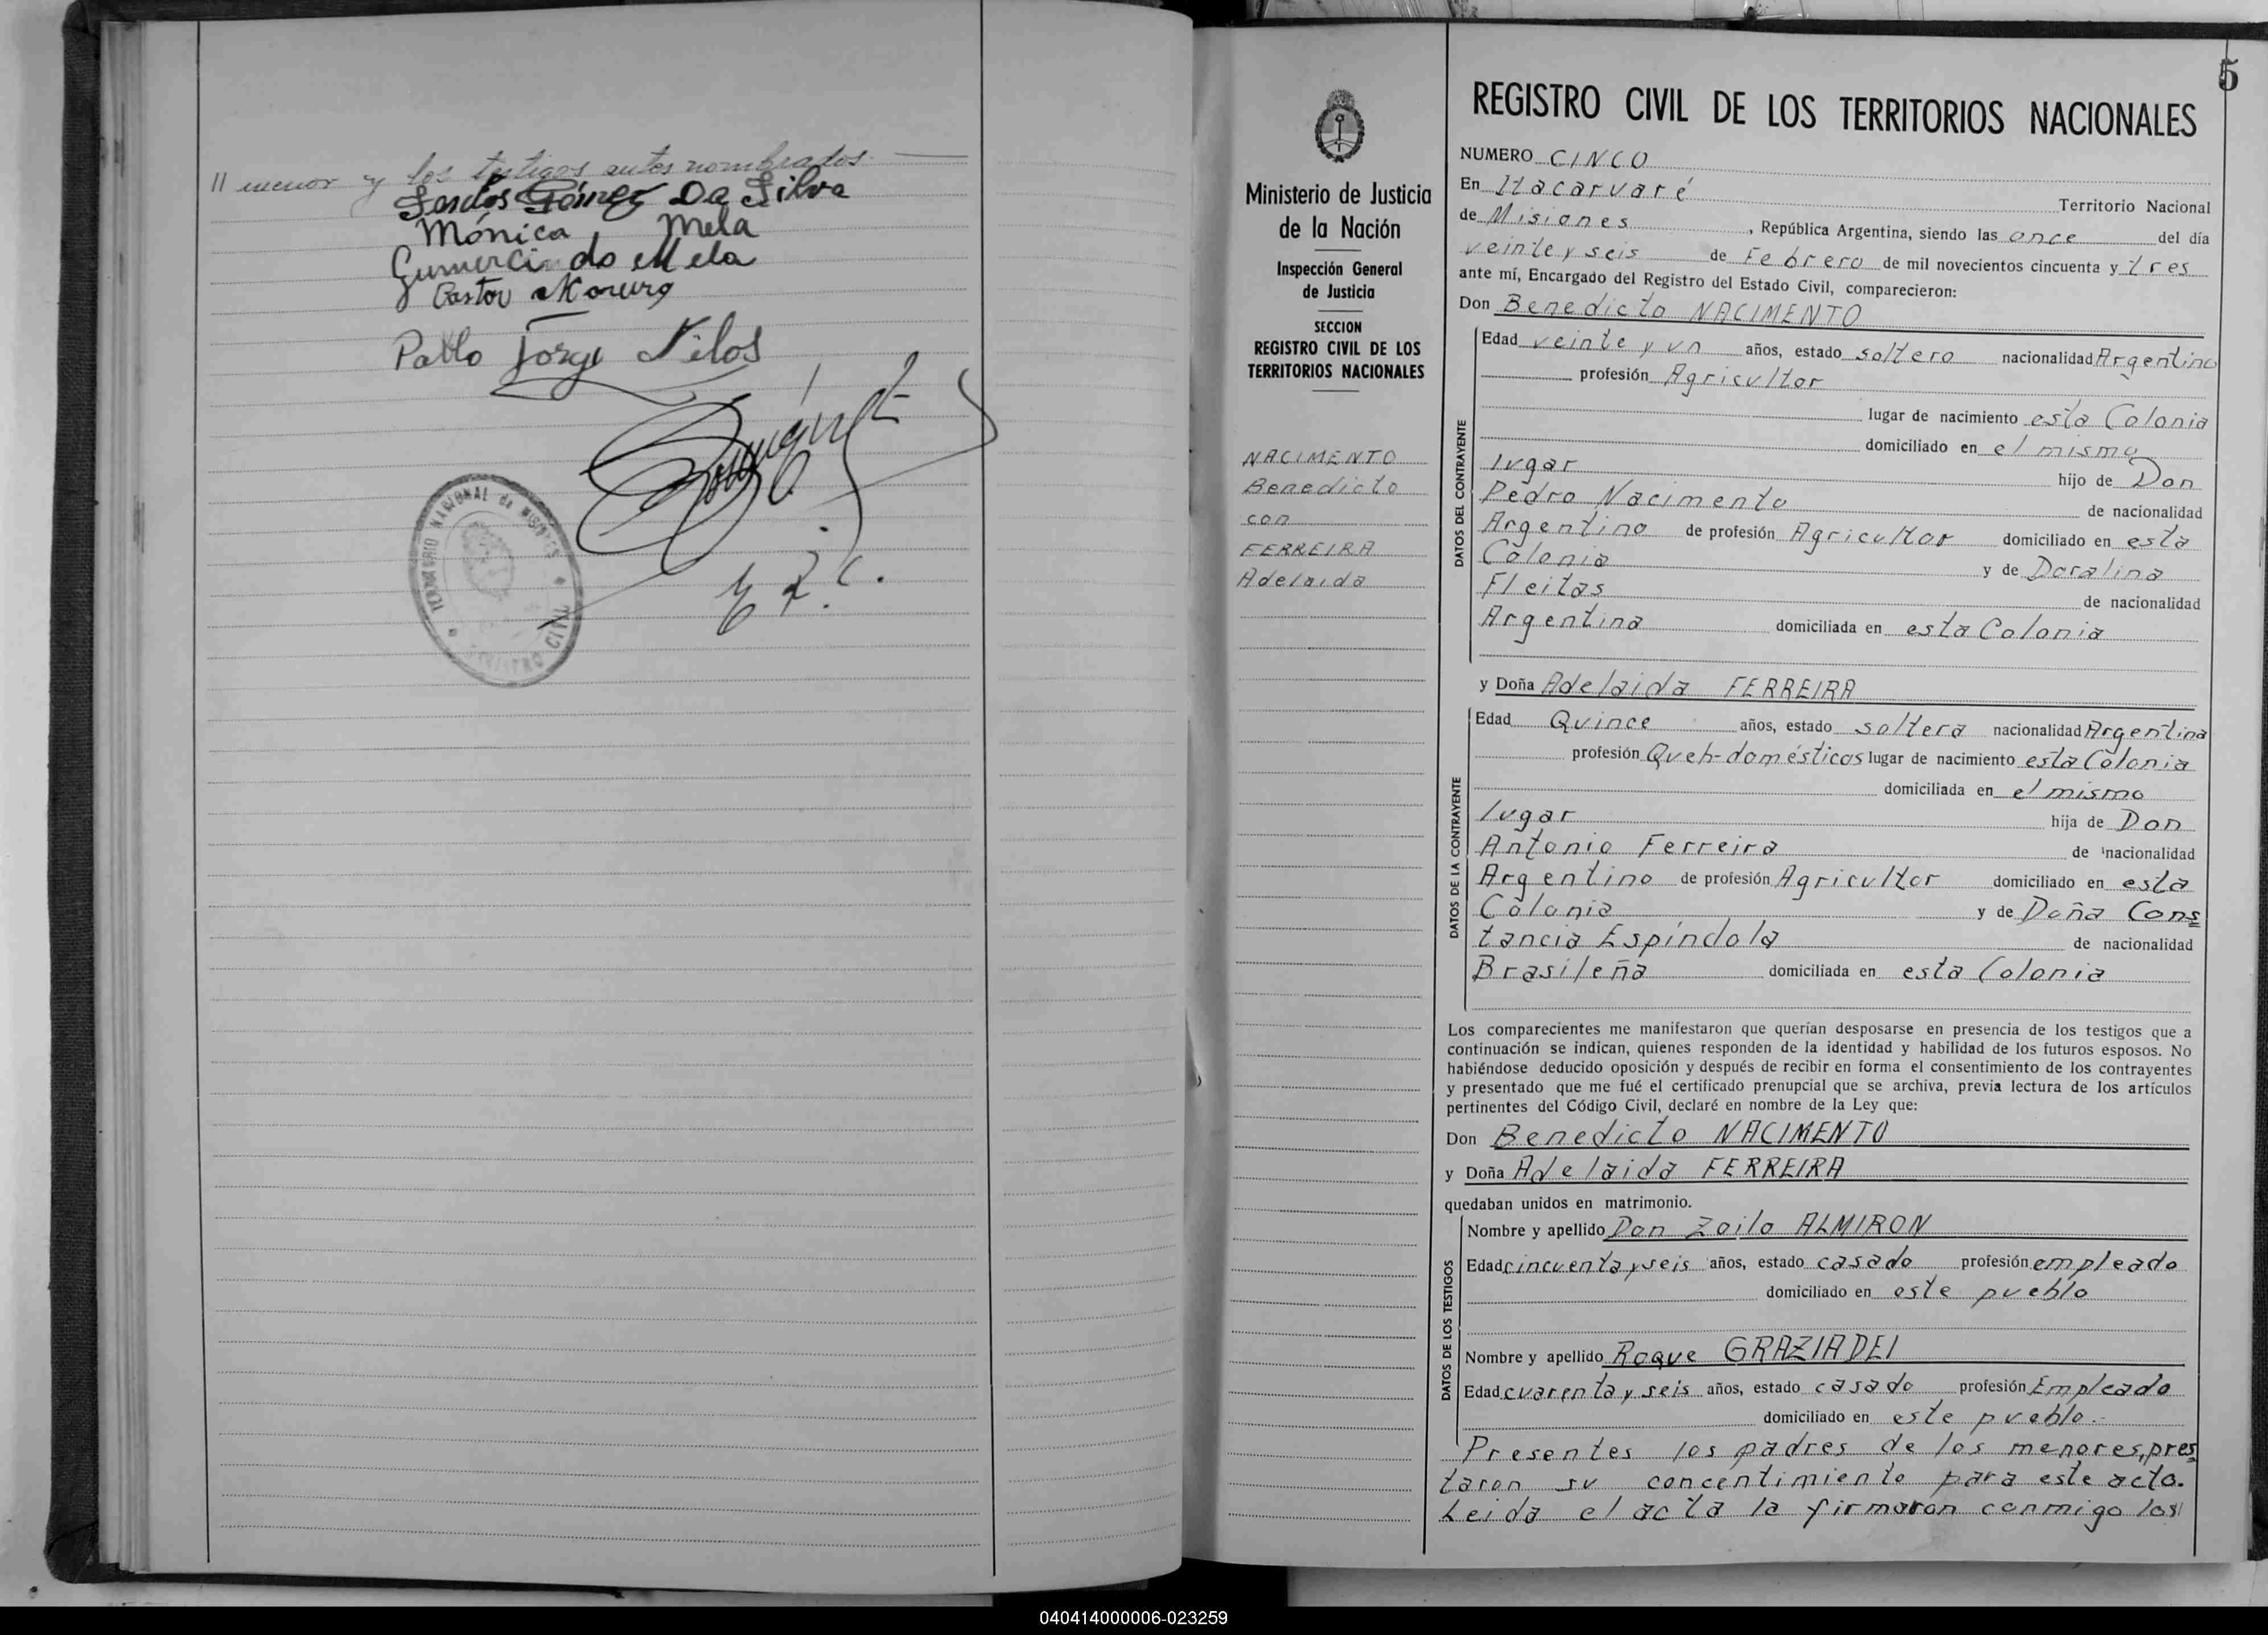 // menor y los testigos antes nombrados.
Gómez Da Silva
Mónica Mela
Gumercindo Mela
Pastor
Pablo Jorge
TERRITORIO NACIONAL de MISIONES
REGISTRO CIVIL
5
Ministerio de Justicia
de la Nación
Inspección General
de Justicia
SECCION
REGISTRO CIVIL DE LOS
TERRITORIOS NACIONALES
NACIMENTO
Benedicto
con
FERREIRA
Adelaida
REGISTRO CIVIL DE LOS TERRITORIOS NACIONALES
NUMERO CINCO
En Itacarvaré Territorio Nacional
de Misiones, República Argentina, siendo las once del día
veinte y seis de Febrero de mil novecientos cincuenta y tres
ante mí, Encargado del Registro del Estado Civil, comparecieron:
Don Benedicto NACIMENTO
DATOS DEL CONTRAYENTE
Edad veinte y un años, estado soltero nacionalidad Argentino
profesión Agricultor
lugar de nacimiento esta Colonia
domiciliado en el mismo
lugar hijo de Don
Pedro Nacimento de nacionalidad
Argentino de profesión Agricultor domiciliado en esta
Colonia y de Doralina
Fleitas de nacionalidad
Argentina domiciliada en esta Colonia
y Doña Adelaida FERREIRA
DATOS DE LA CONTRAYENTE
Edad Quince años, estado soltera nacionalidad Argentina
profesión Queh-domésticos lugar de nacimiento esta Colonia
domiciliada en el mismo
lugar hija de Don
Antonio Ferreira de nacionalidad
Argentino de profesión Agricultor domiciliado en esta
Colonia y de Doña Cons
tancia Espíndola de nacionalidad
Brasileña domiciliada en esta Colonia
Los comparecientes me manifestaron que querían desposarse en presencia de los testigos que a
continuación se indican, quienes responden de la identidad y habilidad de los futuros esposos. No
habiéndose deducido oposición y después de recibir en forma el consentimiento de los contrayentes
y presentado que me fué el certificado prenupcial que se archiva, previa lectura de los artículos
pertinentes del Código Civil, declaré en nombre de la Ley que:
Don Benedicto NACIMENTO
y Doña Adelaida FERREIRA
quedaban unidos en matrimonio.
DATOS DE LOS TESTIGOS
Nombre y apellido Don Zoilo ALMIRON
Edad cincuenta y seis años, estado casado profesión empleado
domiciliado en este pueblo
Nombre y apellido Roque GRAZIADEI
Edad cuarenta y seis años, estado casado profesión Empleado
domiciliado en este pueblo.-
Presentes los padres de los menores, pres
taron su concentimiento para este acto.
Leida el acta la firmaron conmigo los
040414000006-023259